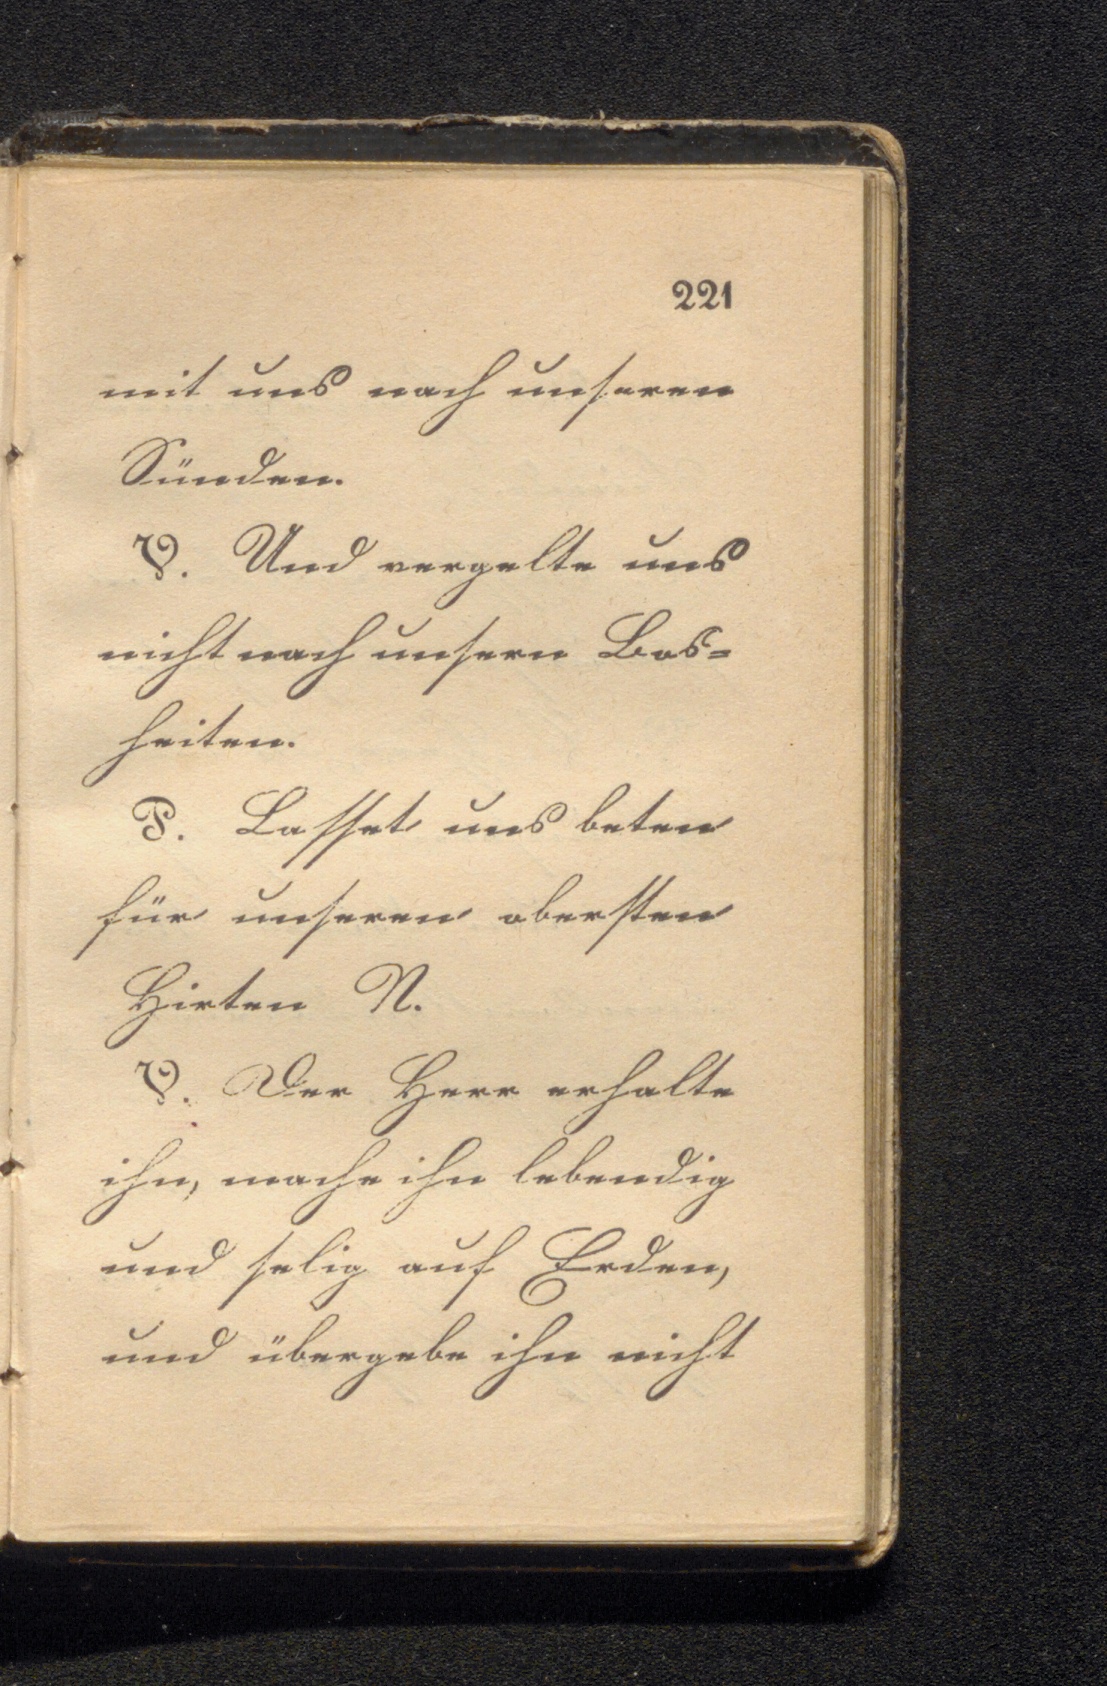 221
mit uns nach unseren
Sünden.
V. Und vergelte uns
nicht nach unsern Bos=
heiten.
P. Lasset uns beten
für unseren obersten
Hirten N.
V. Der Herr erhalte
ihn, mache ihn lebendig
und selig auf Erden,
und übergebe ihn nicht